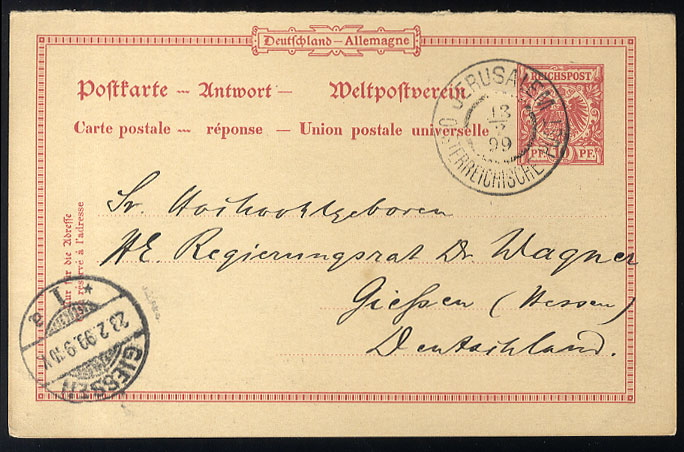 Deutschland – Allemagne
Postkarte – Antwort – Weltpostverein
Carte postale – réponse – Union postale universelle
REICHSPOST
PF. PF.
JERUSALEM
13
99
ÖSTERREICHISCHE POST
Nur für die Adresse
réservé à l'adresse
Sr. Hochwohlgeboren
HE. Regierungsrat Dr. Wagner
Giessen (Hessen)
Deutschland.
* 1 a
23.2.99.9-10V
GIESSEN